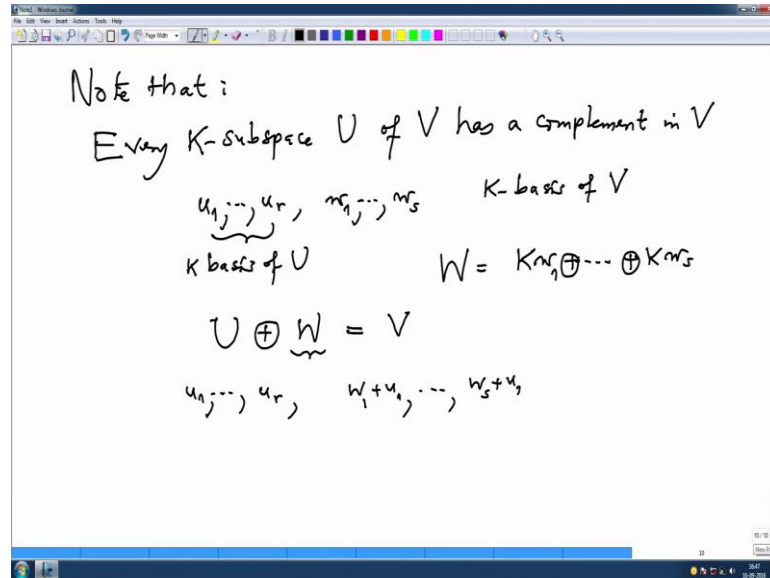 Note1 - Windows Journal
File Edit View Insert Actions Tools Help
Page Width
Note that :
Every K-subspace U of V has a complement in V
u₁, ⋯, uᵣ, w₁, ⋯, wₛ K-basis of V
K basis of U W = Kw₁ ⊕ ⋯ ⊕ Kwₛ
U ⊕ W = V
u₁, ⋯, uᵣ, w₁+u₁, ⋯, wₛ+u₁
10
10/10
New P
16:47
16-09-2016